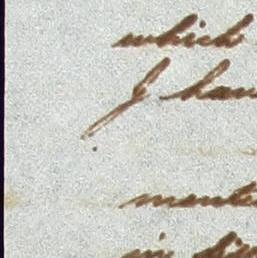 which
I hav
mente
in